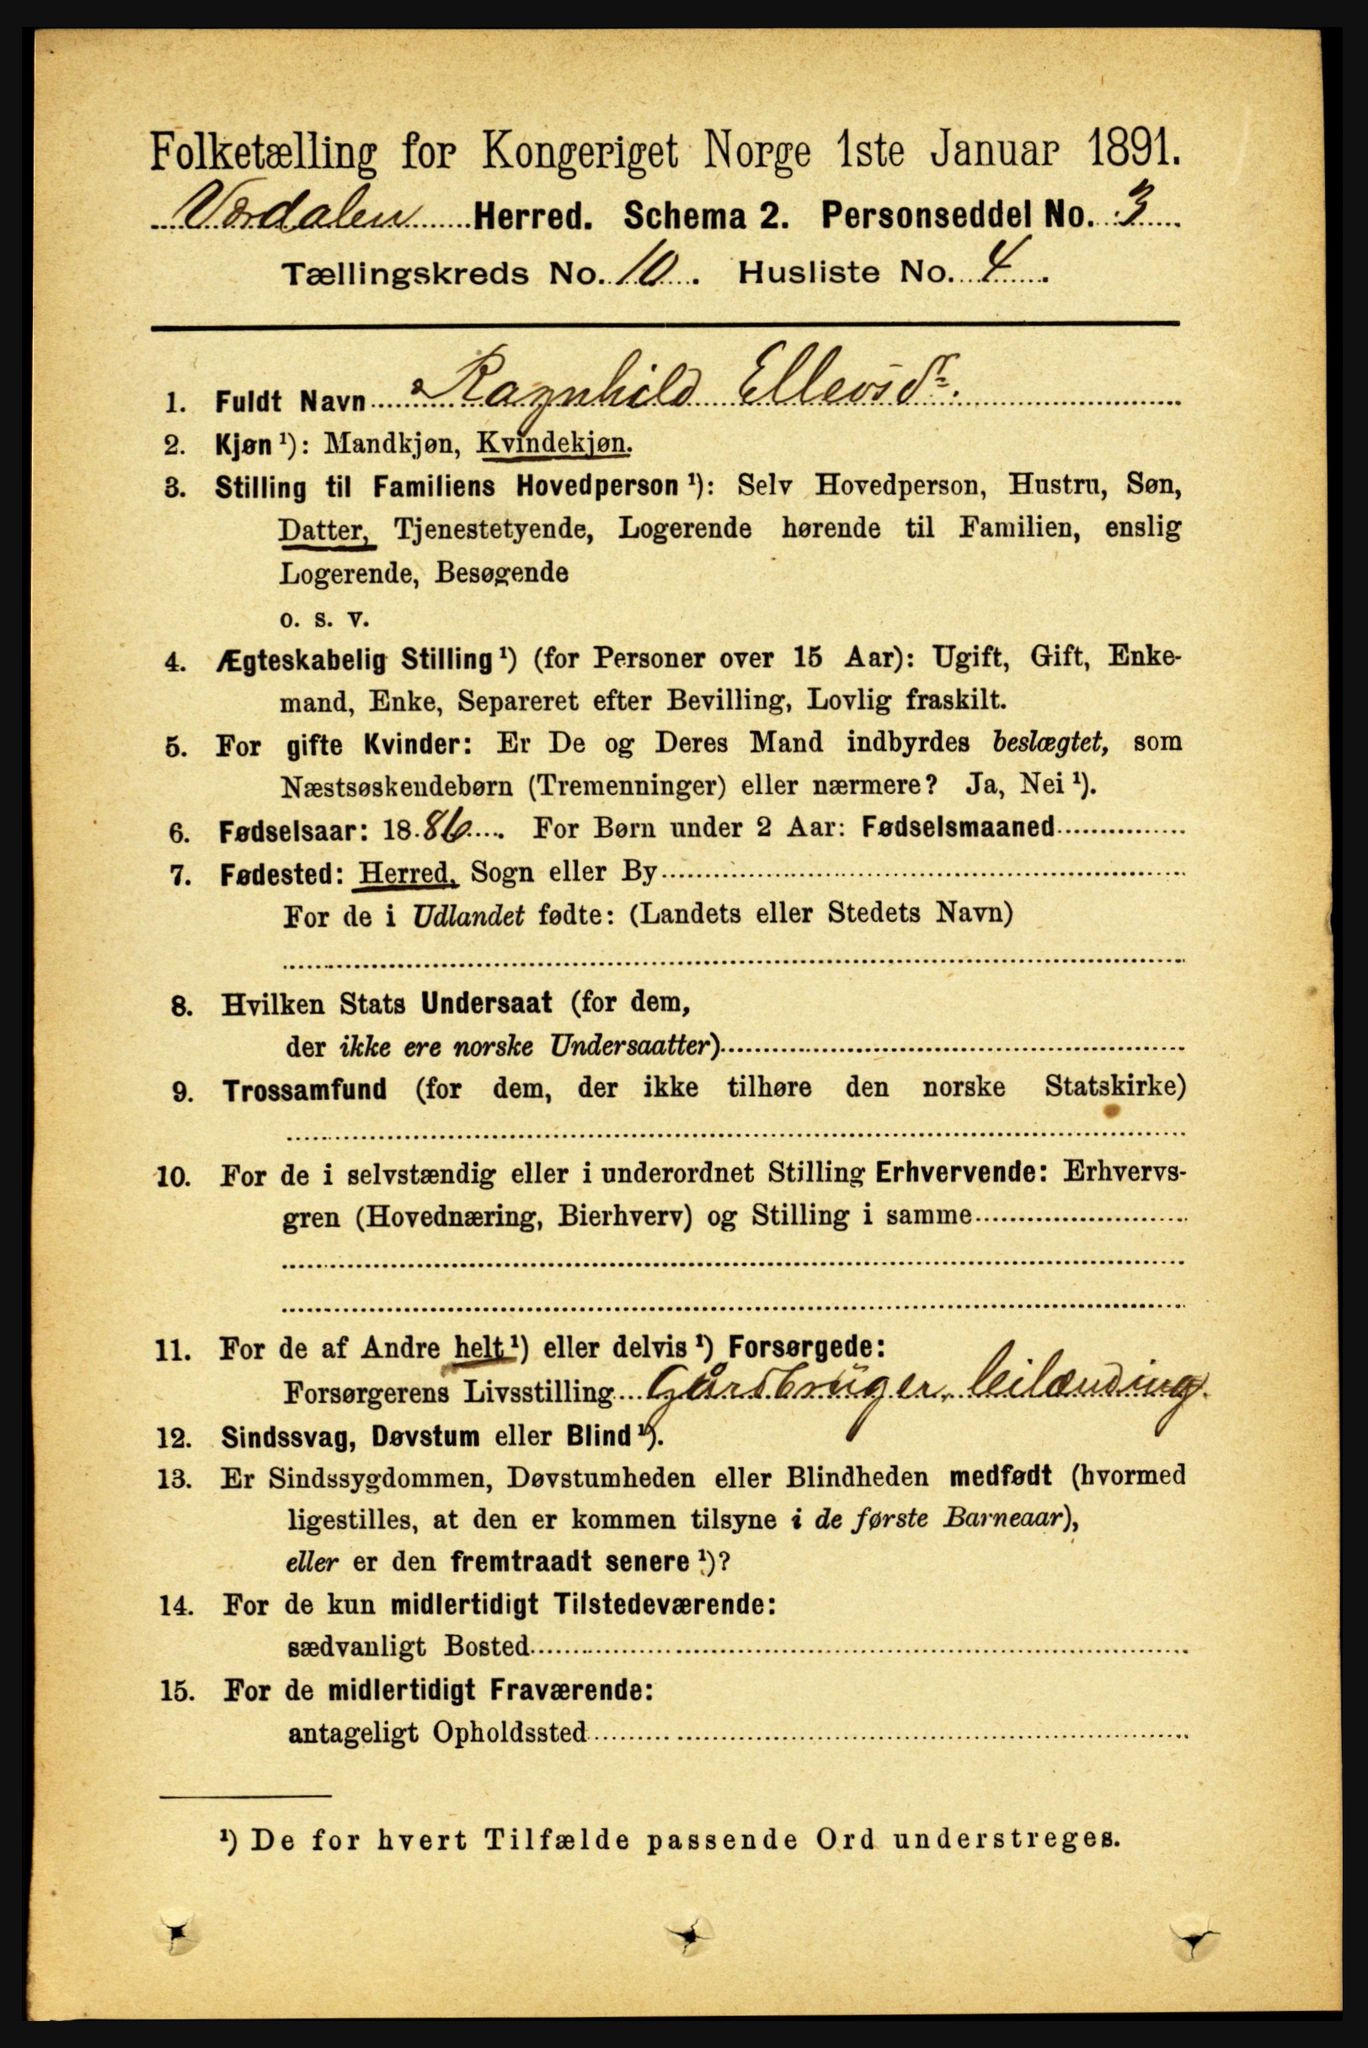 Folketælling for Kongeriget Norge 1ste Januar 1891.
Værdalen Herred. Schema 2. Personseddel No. 3
Tællingskreds No. 10. Husliste No. 4.
1. Fuldt Navn Ragnhild Ellevsdr.
2. Kjøn ¹): Mandkjøn, Kvindekjøn.
3. Stilling til Familiens Hovedperson ¹): Selv Hovedperson, Hustru, Søn,
Datter, Tjenestetyende, Logerende hørende til Familien, enslig
Logerende, Besøgende
o. s. v.
4. Ægteskabelig Stilling ¹) (for Personer over 15 Aar): Ugift, Gift, Enke-
mand, Enke, Separeret efter Bevilling, Lovlig fraskilt.
5. For gifte Kvinder: Er De og Deres Mand indbyrdes beslægtet, som
Næstsøskendebørn (Tremenninger) eller nærmere? Ja, Nei ¹).
6. Fødselsaar: 1886. For Børn under 2 Aar: Fødselsmaaned
7. Fødested: Herred, Sogn eller By
For de i Udlandet fødte: (Landets eller Stedets Navn)
8. Hvilken Stats Undersaat (for dem,
der ikke ere norske Undersaatter)
9. Trossamfund (for dem, der ikke tilhøre den norske Statskirke)
10. For de i selvstændig eller i underordnet Stilling Erhvervende: Erhvervs-
gren (Hovednæring, Bierhverv) og Stilling i samme
11. For de af Andre helt ¹) eller delvis ¹) Forsørgede:
Forsørgerens Livsstilling Gårdbrüger, leilænding.
12. Sindssvag, Døvstum eller Blind ¹).
13. Er Sindssygdommen, Døvstumheden eller Blindheden medfødt (hvormed
ligestilles, at den er kommen tilsyne i de første Barneaar),
eller er den fremtraadt senere ¹)?
14. For de kun midlertidigt Tilstedeværende:
sædvanligt Bosted
15. For de midlertidigt Fraværende:
antageligt Opholdssted
¹) De for hvert Tilfælde passende Ord understreges.